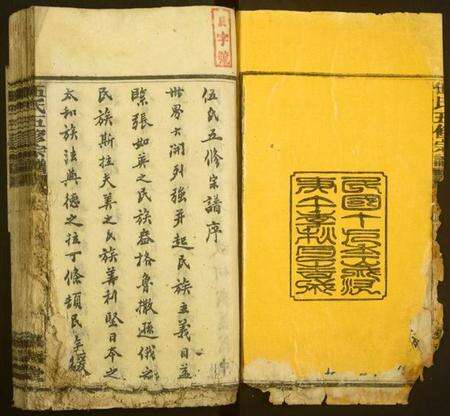 民國十九年歲次
庚午季秋月
字號
伍氏五修宗譜序
世界大開列強并起民族主義日益
膨張如英之民族盎格魯撒遜俄之
民族斯拉夫美之民族美利堅日本之
太和族法與德之拉丁條頓民
伍氏五修宗譜